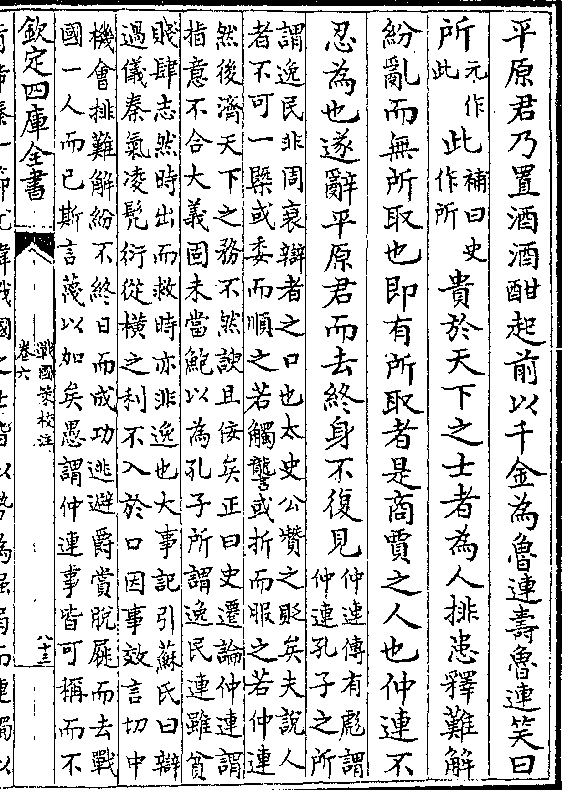 平原君乃置酒酒酣起前以千金為魯連壽魯連笑曰
所元作此此補曰史作所貴於天下之士者為人排患釋難解
紛亂而無所取也即有所取者是商賈之人也仲連不
忍為也遂辭平原君而去終身不復見仲連傳有彪謂
仲連孔子之所
謂逸民非周衰辯者之口也太史公贊之貶矣夫說人
者不可一槩或委而順之若觸讋或折而服之若仲連
然後濟天下之務不然諛且佞矣正曰史遷論仲連謂
指意不合大義固未當鮑以為孔子所謂逸民連雖貧
賤肆志然時出而救時亦非逸也大事記引蘇氏曰辯
過儀秦氣凌髡衍從横之利不入於口因事效言切中
機會排難解紛不終日而成功逃避爵賞脫屣而去戰
國一人而已斯言蔑以加矣愚謂仲連事皆可稱而不
欽定四庫全書
戰國策校注
卷六
八十三